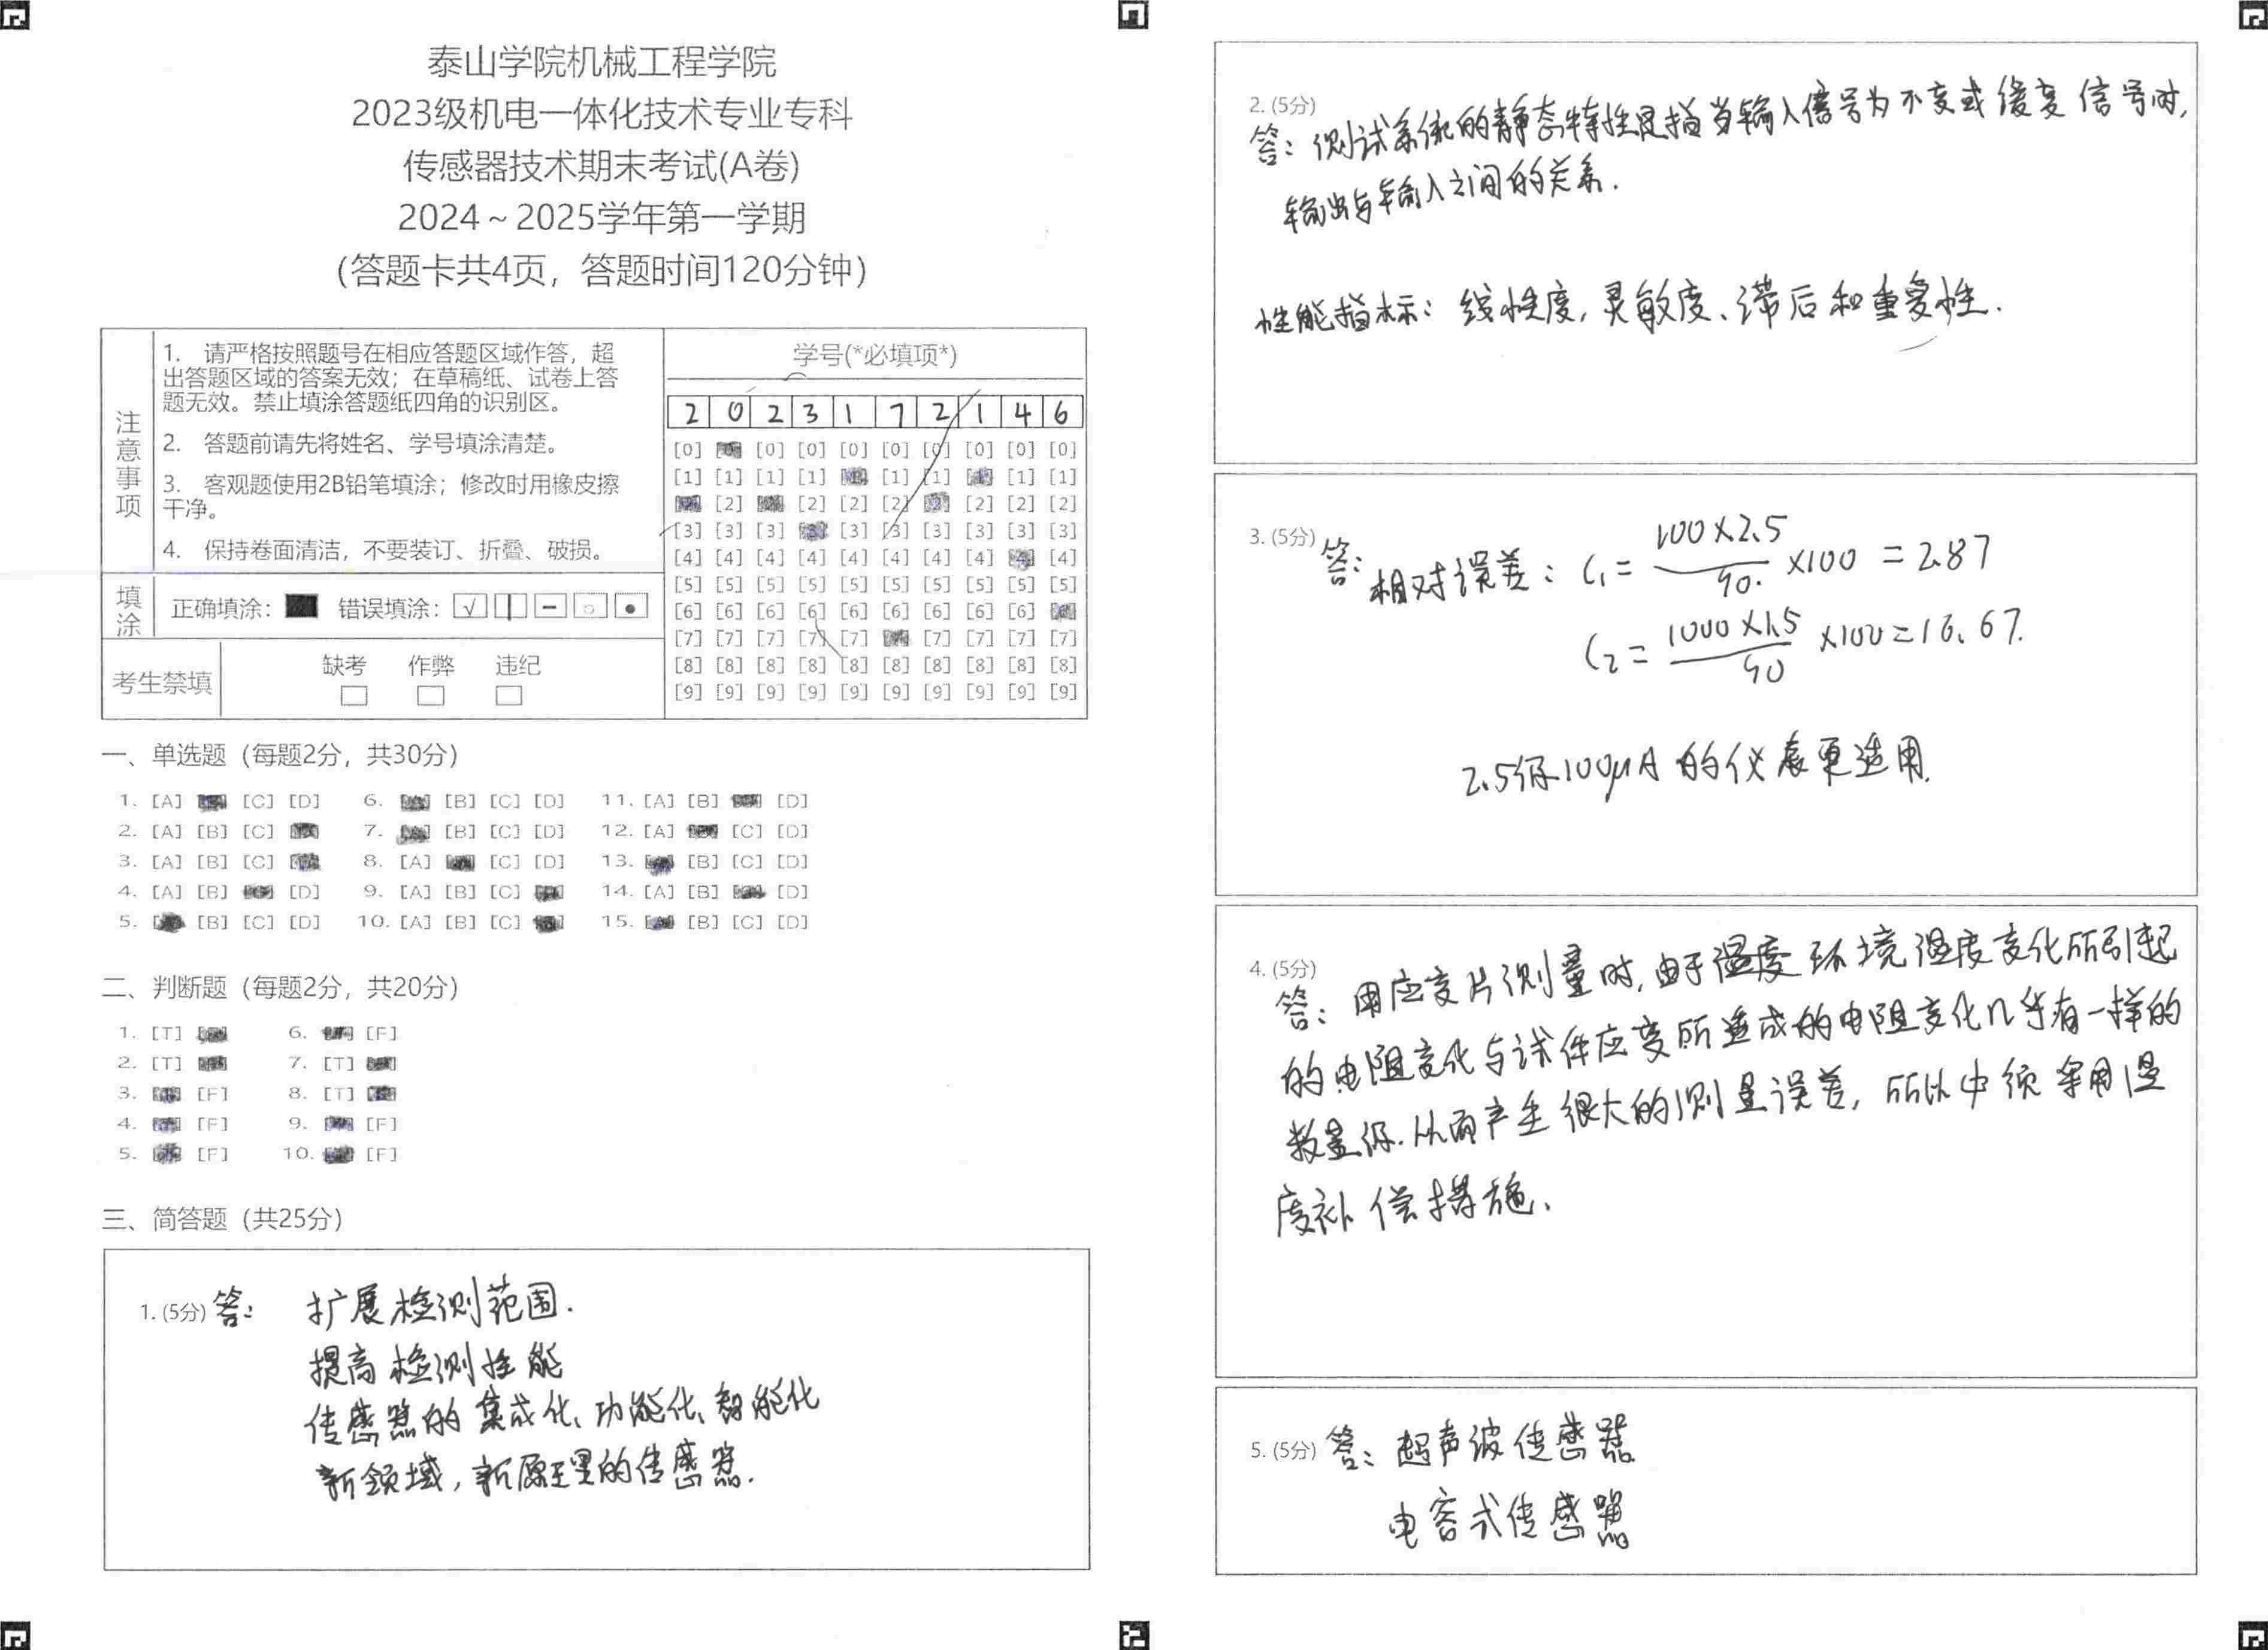 泰山学院机械工程学院
2023级机电一体化技术专业专科
传感器技术期末考试(A卷)
2024～2025学年第一学期
(答题卡共4页，答题时间120分钟)
注意事项
1. 请严格按照题号在相应答题区域作答，超
出答题区域的答案无效；在草稿纸、试卷上答
题无效。禁止填涂答题纸四角的识别区。
2. 答题前请先将姓名、学号填涂清楚。
3. 客观题使用2B铅笔填涂；修改时用橡皮擦
干净。
4. 保持卷面清洁，不要装订、折叠、破损。
填涂 正确填涂： 错误填涂：
考生禁填 缺考 作弊 违纪
学号(*必填项*)
2 0 2 3 1 7 2 1 4 6
[0] [0] [0] [0] [0] [0] [0] [0] [0]
[1] [1] [1] [1] [1] [1] [1] [1]
[2] [2] [2] [2] [2] [2] [2]
[3] [3] [3] [3] [3] [3] [3] [3] [3]
[4] [4] [4] [4] [4] [4] [4] [4] [4]
[5] [5] [5] [5] [5] [5] [5] [5] [5] [5]
[6] [6] [6] [6] [6] [6] [6] [6] [6]
[7] [7] [7] [7] [7] [7] [7] [7] [7]
[8] [8] [8] [8] [8] [8] [8] [8] [8] [8]
[9] [9] [9] [9] [9] [9] [9] [9] [9] [9]
一、单选题（每题2分，共30分）
1. [A] [C] [D] 6. [B] [C] [D] 11. [A] [B] [D]
2. [A] [B] [C] 7. [B] [C] [D] 12. [A] [C] [D]
3. [A] [B] [C] 8. [A] [C] [D] 13. [B] [C] [D]
4. [A] [B] [D] 9. [A] [B] [C] 14. [A] [B] [D]
5. [B] [C] [D] 10. [A] [B] [C] 15. [B] [C] [D]
二、判断题（每题2分，共20分）
1. [T] 6. [F]
2. [T] 7. [T]
3. [F] 8. [T]
4. [F] 9. [F]
5. [F] 10. [F]
三、简答题（共25分）
1. (5分) 答： 扩展检测范围.
提高检测性能
传感器的集成化、功能化、智能化
新领域，新原理的传感器.
2. (5分)
答：测试系统的静态特性是指当输入信号为不变或缓变信号时,
输出与输入之间的关系.
性能指标：线性度，灵敏度、滞后和重复性.
3. (5分) 答：相对误差：C₁= 100×2.5/90. ×100 =2.87
C₂= 1000×1.5/90 ×100=16.67.
2.5级100μA的仪表更适用.
4. (5分)
答：用应变片测量时,由于温度环境温度变化所引起
的电阻变化与试件应变所造成的电阻变化几乎有一样的
数量级.从而产生很大的测量误差，所以必须采用温
度补偿措施.
5. (5分) 答：超声波传感器
电容式传感器